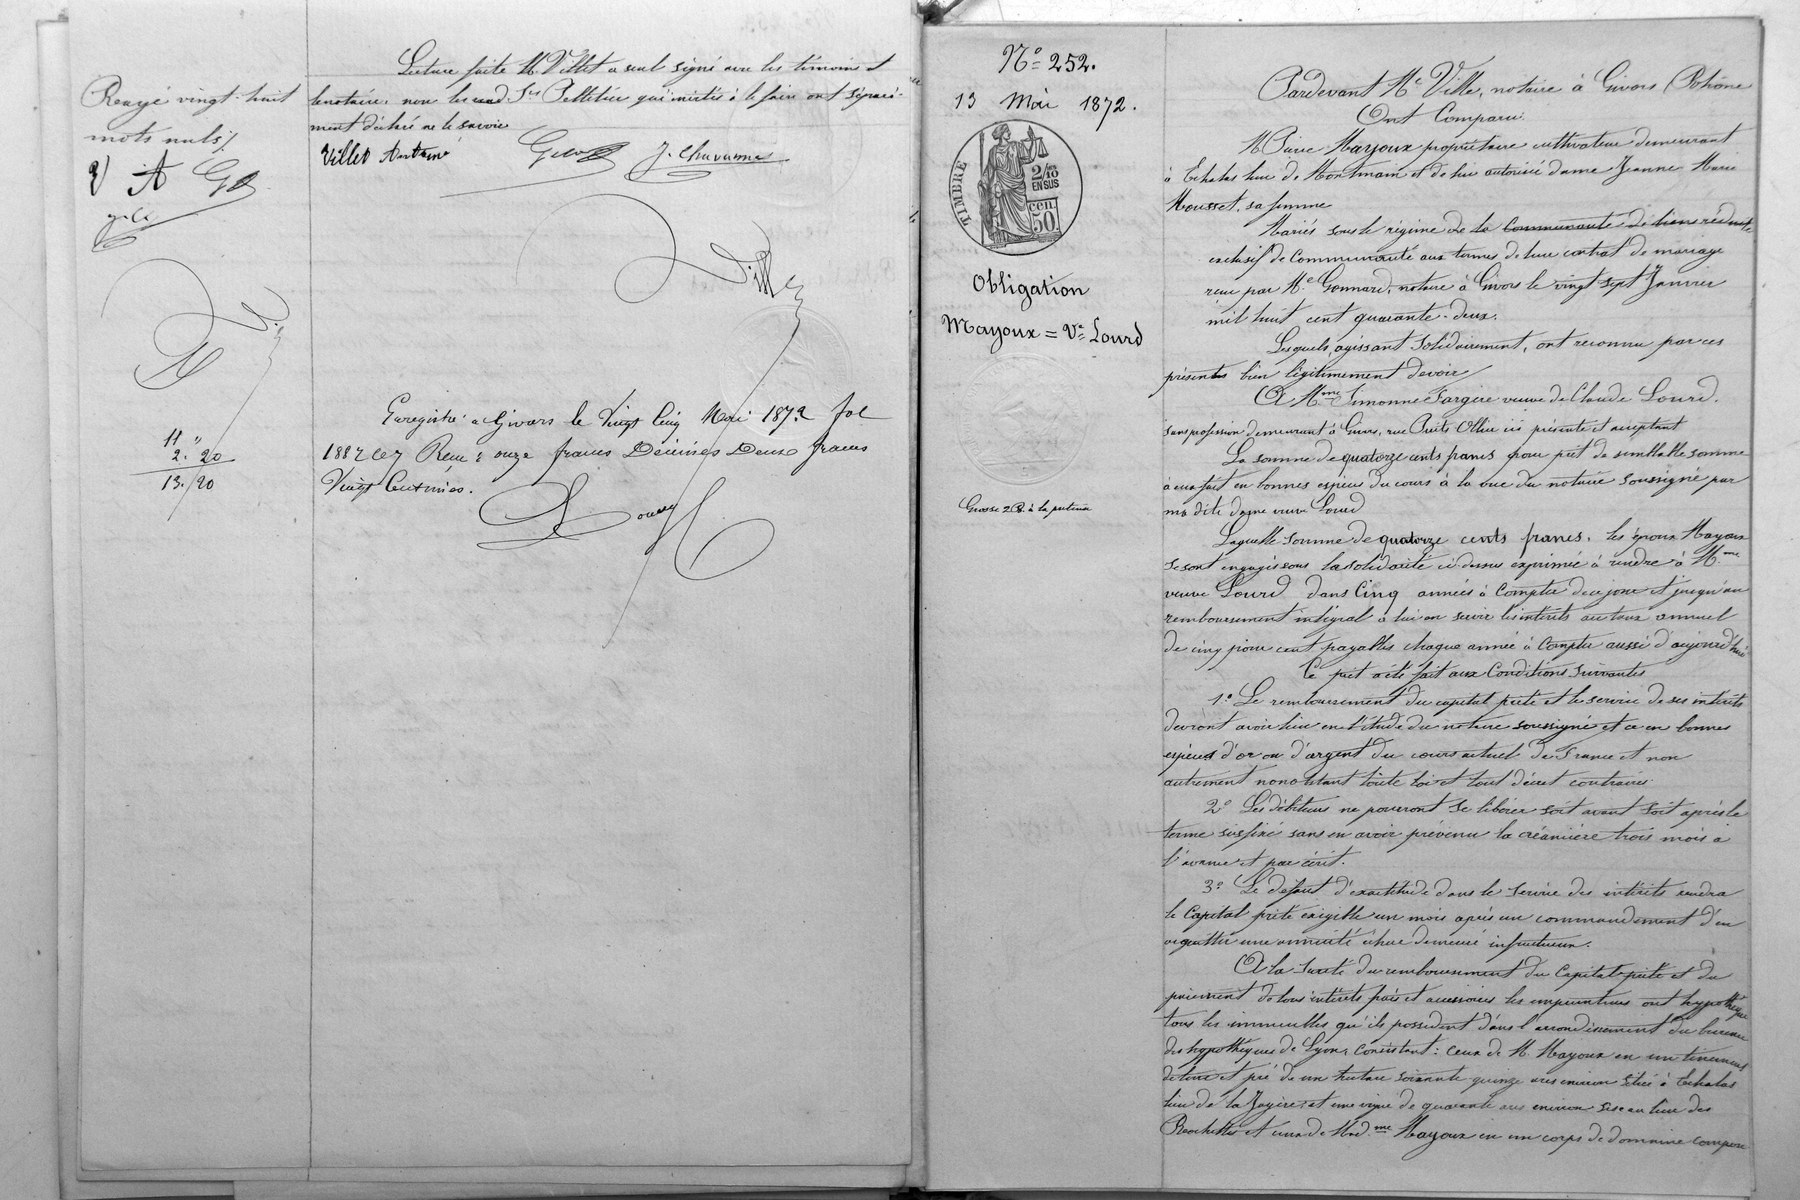 Lecture faite M. Villet a seul signé avec les témoins et
le notaire, non les Pelletier qui invités à le faire ont séparé-
ment déclaré ne le savoir
Villet Antoine J. Chavanne
Rayé vingt-huit
mots nuls
Ville
Enregistré à Givors le Vingt Cinq Mai 1872 fol
Reçu : onze francs Décimes Deux francs
Vingt Centimes.
11 "
2. 20
13. 20
N° 252.
13 Mai 1872.
TIMBRE
2/10
EN SUS
50 cen.
Obligation
Mayoux = Ve Lourd
Grosse
Pardevant Me Ville, notaire à Givors (Rhône
Ont Comparu
M. Mayoux propriétaire cultivateur demeurant
à Echalas lieu de Montmain et de lui autorisée dame Jeanne Marie
Mousset, sa femme
Mariés sous le régime de la communauté de biens réduite
exclusif de Communauté aux termes de leur contrat de mariage
reçu par Me Gonnard, notaire à Givors le vingt sept Janvier
mil huit cent quarante-deux.
Lesquels, agissant solidairement, ont reconnu par ces
présentes bien légitimement devoir
A Mme Simonne Fargere veuve de Claude Lourd.
sans profession demeurant à Givors, rue Puits Ollier ici présente et acceptant
La somme de quatorze cents francs pour prêt de semblable somme
à eux fait en bonnes espèces du cours à la vue du notaire soussigné par
ma dite dame veuve Lourd
Laquelle somme de quatorze cents francs, les époux Mayoux
se sont engagés sous la solidarité ci-dessus exprimée à rendre à Mme
veuve Lourd dans Cinq années à Compter de ce jour et jusqu'au
remboursement intégral à lui en servir les intérêts au taux annuel
de cinq pour cent payables chaque année à Compter aussi d'aujourd'hui
Ce prêt a été fait aux Conditions suivantes
1° Le remboursement du capital prêté et le service de ses intérêts
devront avoir lieu en l'étude du notaire soussigné et ce en bonnes
espèces d'or ou d'argent du cours actuel de France et non
autrement nonobstant toute loi et tout décret contraires
2° Les débiteurs ne pourront se libérer soit avant soit après le
terme susfixé sans en avoir prévenu la créancière trois mois à
l'avance et par écrit.
3° Le défaut d'exactitude dans le service des intérêts rendra
le Capital prêté exigible un mois après un commandement d'en
acquitter une annuité échue demeuré infructueux.
A la sureté du remboursement du Capital prêté et du
paiement de tous intérêts frais et accessoires les emprunteurs ont hypothéqué
tous les immeubles qu'ils possèdent dans l'arrondissement du bureau
des hypothèques de Lyon, Consistant : ceux de M. Mayoux en un tènement
de terre et pré de un hectare soixante quinze ares environ situé à Echalas
lieu de la et une vigne de quarante ares environ sise au lieu des
Rochettes et ceux de Mad.me Mayoux en un corps de domaine composé